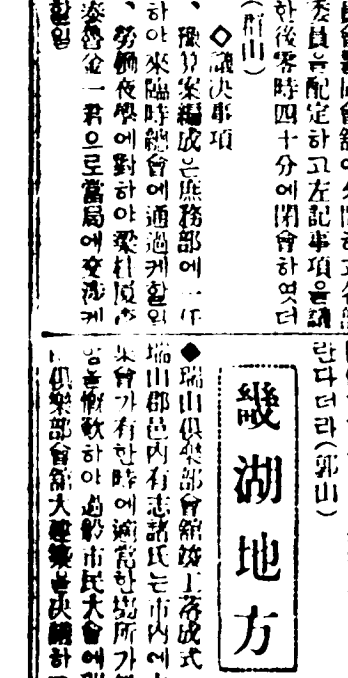 委員을配定하고左記事項을議
한後零時四十分에閉會하엿더
(群山)
◇議決事項
、豫算案編成은庶務部에一任
하야來臨時總會에通過케할일
、勞働夜學에對하야梁柱
金一君으로當局에交涉케
할일
란다더라(郭山)
畿湖地方
◆瑞山俱樂部會舘竣工落成式
瑞山郡邑內有志諸氏는市內에
集會가有한時에適當한場所가
을慨歎하야過般市民大會에
俱樂部會舘大建築을決議하